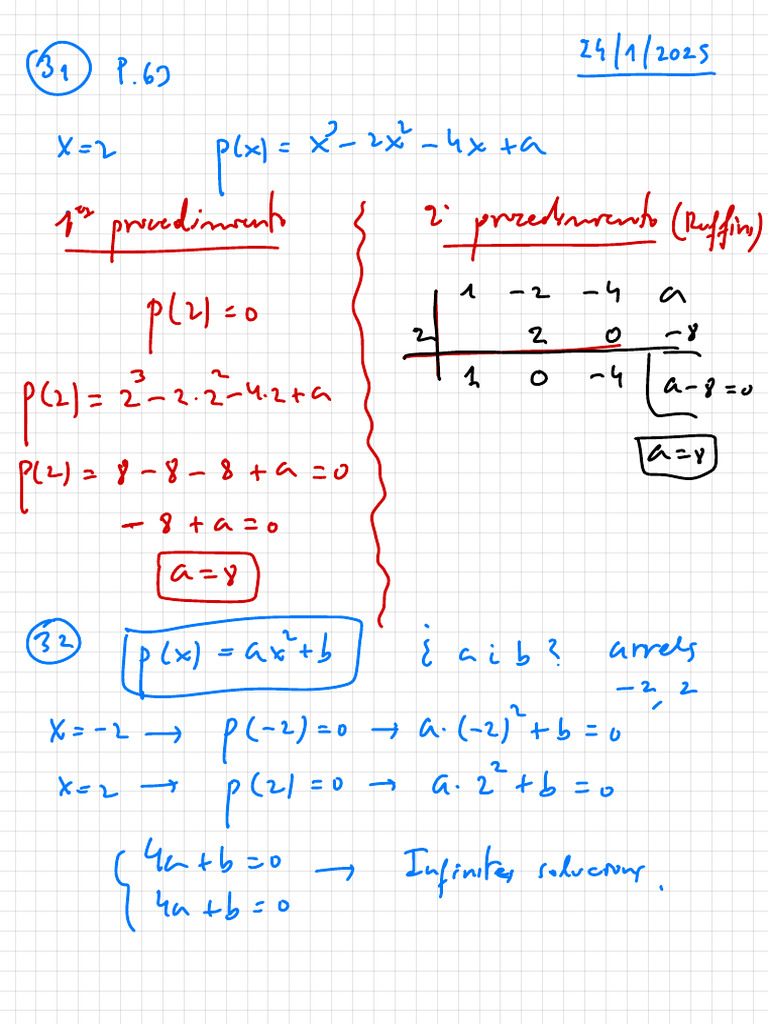 31 P.63 24/1/2025
x=2 p(x) = x³ - 2x² - 4x + a
1er procedimento
p(2) = 0
p(2) = 2³ - 2·2² - 4·2 + a
p(2) = 8 - 8 - 8 + a = 0
- 8 + a = 0
a = 8
2º procedimento (Ruffini)
1 -2 -4 a
2 2 0 -8
1 0 -4 a - 8 = 0
a = 8
32 p(x) = ax² + b ¿ a i b? arrels
-2, 2
x = -2 → p(-2) = 0 → a·(-2)² + b = 0
x = 2 → p(2) = 0 → a·2² + b = 0
4a + b = 0 → Infinites solucions.
4a + b = 0